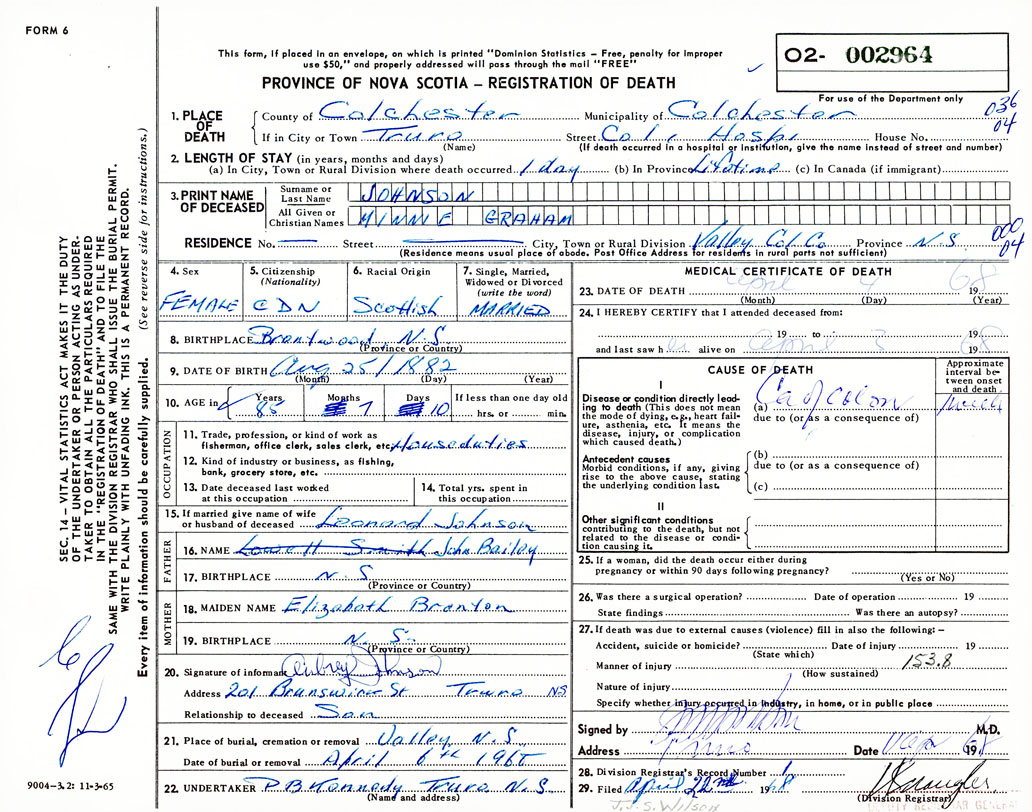 FORM 6
This form, if placed in an envelope, on which is printed "Dominion Statistics – Free, penalty for improper
use $50," and properly addressed will pass through the mail "FREE"
PROVINCE OF NOVA SCOTIA – REGISTRATION OF DEATH
02- 002964
For use of the Department only
036
04
1. PLACE OF DEATH
County of Colchester Municipality of Colchester
If in City or Town Truro Street Col. Hosp. House No.
(Name) (If death occurred in a hospital or institution, give the name instead of street and number)
2. LENGTH OF STAY (in years, months and days)
(a) In City, Town or Rural Division where death occurred 1 day (b) In Province Lifetime (c) In Canada (if immigrant)
3. PRINT NAME OF DECEASED
Surname or Last Name JOHNSON
All Given or Christian Names MINNIE GRAHAM
RESIDENCE No. Street City, Town or Rural Division Valley Col. Co Province N.S.
000
04
(Residence means usual place of abode. Post Office Address for residents in rural parts not sufficient)
4. Sex FEMALE
5. Citizenship (Nationality) CDN
6. Racial Origin Scottish
7. Single, Married, Widowed or Divorced (write the word) MARRIED
8. BIRTHPLACE N.S.
(Province or Country)
9. DATE OF BIRTH Aug 25/1882
(Month) (Day) (Year)
10. AGE in Years 85 Months 7 Days 10 If less than one day old
hrs. or min.
OCCUPATION
11. Trade, profession, or kind of work as
fisherman, office clerk, sales clerk, etc. Houseduties
12. Kind of industry or business, as fishing,
bank, grocery store, etc.
13. Date deceased last worked
at this occupation
14. Total yrs. spent in
this occupation
15. If married give name of wife
or husband of deceased Leonard Johnson
FATHER
16. NAME John Bailey
17. BIRTHPLACE N.S
(Province or Country)
MOTHER
18. MAIDEN NAME Elizabeth Brenton
19. BIRTHPLACE N. S.
(Province or Country)
20. Signature of informant Aubrey Johnson
Address 201 Brunswick St Truro N.S.
Relationship to deceased Son
21. Place of burial, cremation or removal Valley N.S.
Date of burial or removal April 6th
22. UNDERTAKER P B Kennedy Truro N.S.
(Name and address)
MEDICAL CERTIFICATE OF DEATH
23. DATE OF DEATH April 4 1968
(Month) (Day) (Year)
24. I HEREBY CERTIFY that I attended deceased from:
19 to 19
and last saw her alive on April 3 1968
CAUSE OF DEATH
Approximate interval between onset and death
I
Disease or condition directly leading to death (This does not mean the mode of dying, e.g., heart failure, asthenia, etc. It means the disease, injury, or complication which caused death.)
(a) Ca of Colon
due to (or as a consequence of)
Antecedent causes
Morbid conditions, if any, giving rise to the above cause, stating the underlying condition last.
(b)
due to (or as a consequence of)
(c)
II
Other significant conditions
contributing to the death, but not related to the disease or condition causing it.
25. If a woman, did the death occur either during
pregnancy or within 90 days following pregnancy?
(Yes or No)
26. Was there a surgical operation? Date of operation 19
State findings Was there an autopsy?
27. If death was due to external causes (violence) fill in also the following: –
Accident, suicide or homicide? Date of injury 19
(State which)
Manner of injury 153.8
(How sustained)
Nature of injury
Specify whether injury occurred in industry, in home, or in public place
Signed by M.D.
Address Truro Date 1968
28. Division Registrar's Record Number
29. Filed April 22nd 1968
(Division Registrar)
J.J.S. Wilson
SEC. 14 – VITAL STATISTICS ACT MAKES IT THE DUTY
OF THE UNDERTAKER OR PERSON ACTING AS UNDER-
TAKER TO OBTAIN ALL THE PARTICULARS REQUIRED
IN THE "REGISTRATION OF DEATH" AND TO FILE THE
SAME WITH THE DIVISION REGISTRAR WHO SHALL ISSUE THE BURIAL PERMIT.
WRITE PLAINLY WITH UNFADING INK. THIS IS A PERMANENT RECORD.
Every item of information should be carefully supplied. (See reverse side for instructions.)
9004-3.2: 11-3-65